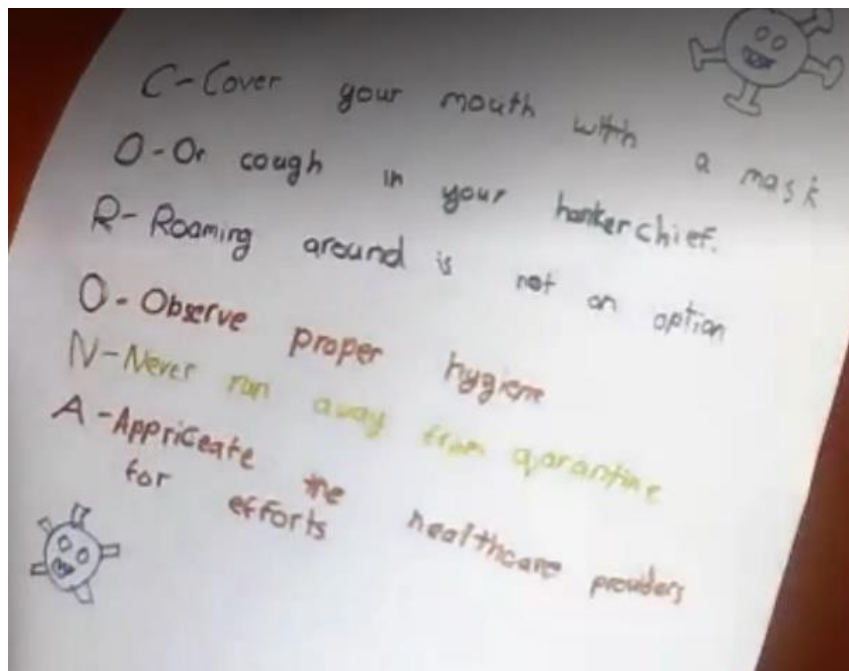 C-Cover your mouth with a mask
O-Or cough in your hankerchief.
R-Roaming around is not an option
O-Observe proper hygiene
N-Never run away from qarantine
A-Appriceate the healthcare providers
for efforts